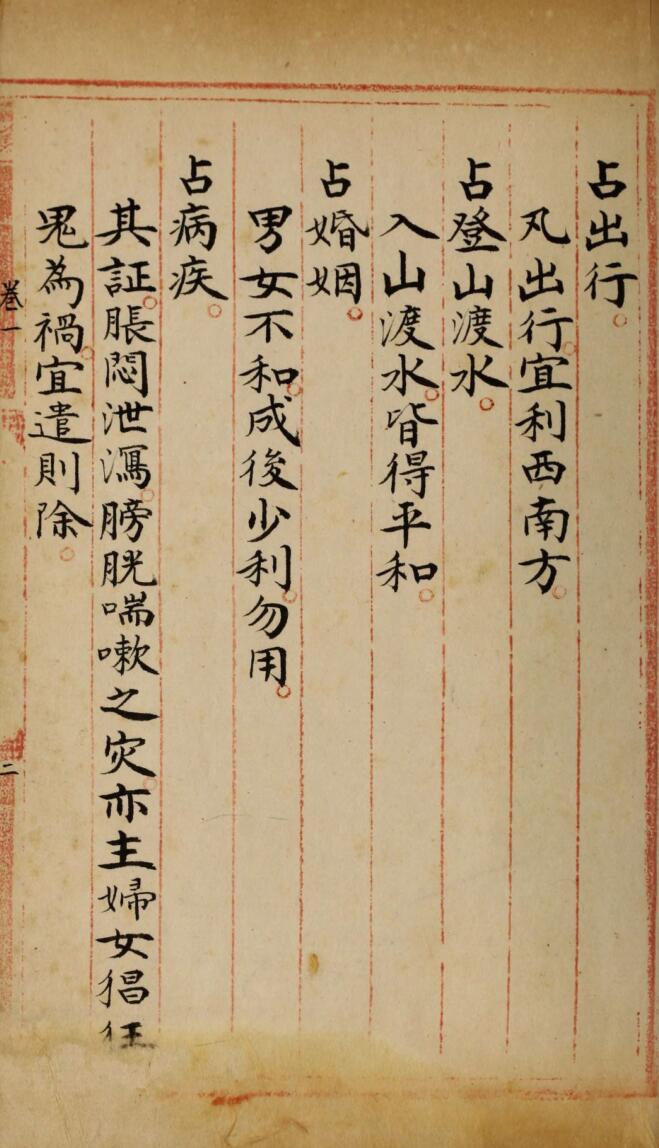 占出行。
凡出行。宜利西南方。
占登山渡水。
入山渡水。皆得平和。
占婚姻。
男女不和。成後少利。勿用。
占病疾。
其証。脹悶泄瀉。膀胱喘嗽之灾。亦主婦女猖狂
鬼為禍。宜遣則除。
卷一
二